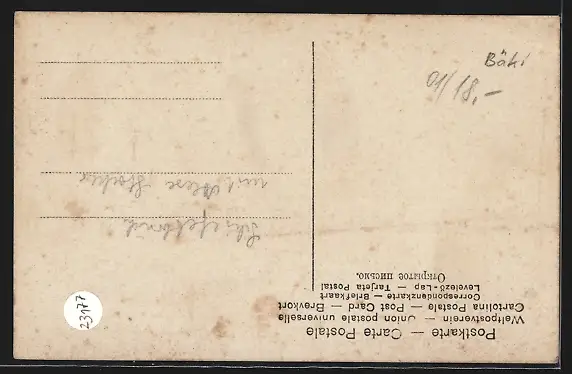 Postkarte — Carte Postale
Weltpostverein — Union postale universelle
Cartolina Postale — Post Card — Brevkort
Correspondenzkarte — Briefkaart
Levelező-Lap — Tarjeta Postal
Открытое письмо.
Bäki
01/18,-
23177